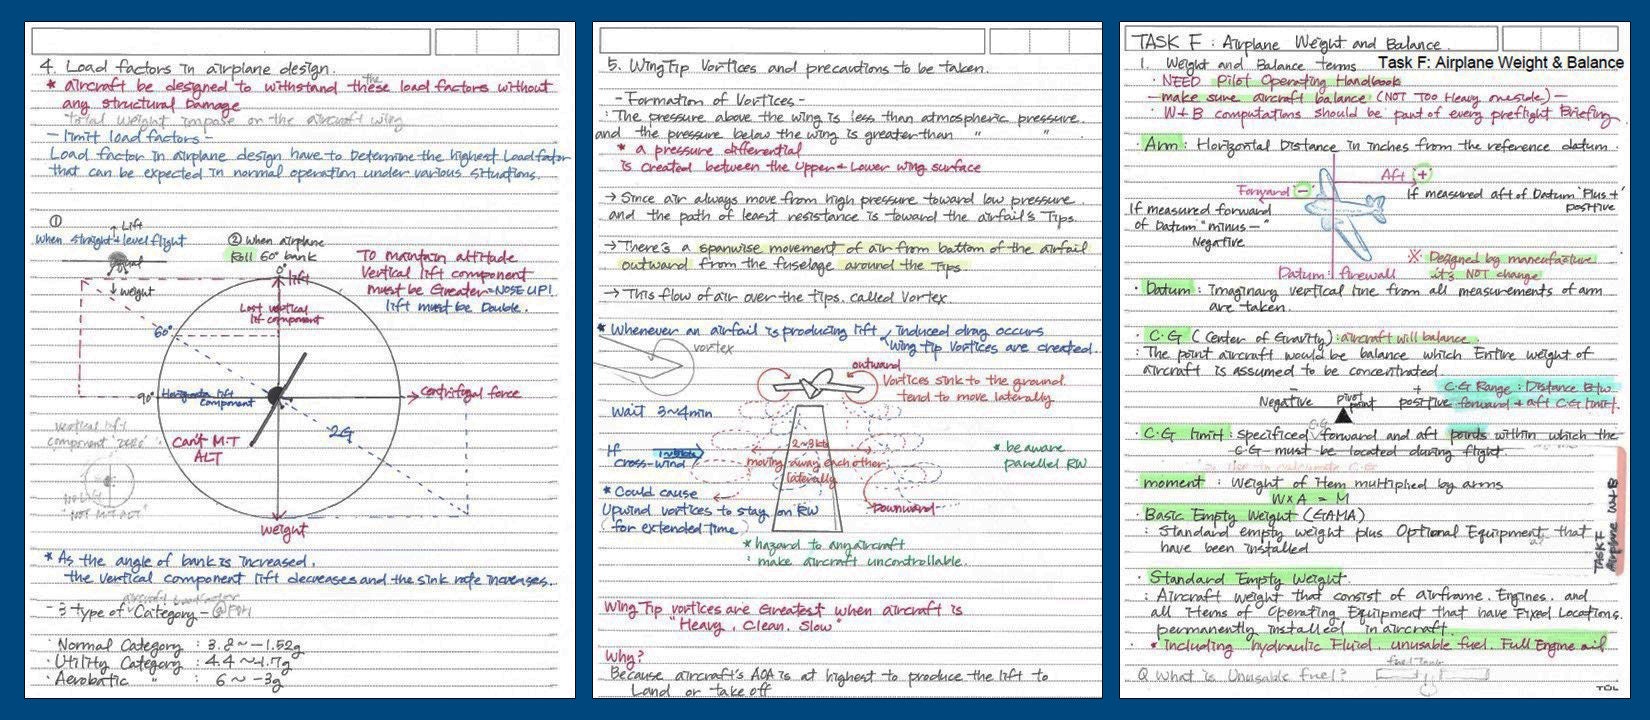 4. Load factors in airplane design.
* aircraft be designed to withstand these the load factors without
any structural Damage
Total weight impose on the aircraft wing
- limit load factors -
Load factor in airplane design have to Determine the highest Load factor
that can be expected in normal operation under various Situations.
①
When straight & level flight
Lift
equal
weight
② When airplane
Roll 60° bank
To maintain altitude
Vertical lift component
must be Greater = NOSE UP!
lift must be Double.
0° lift
Lost vertical
lift component
60°
90°
Horizontal lift
component
centrifugal force
2G
Can't M.T
ALT
vertical lift
component "ZERO"
No Lift
"NOT MT ALT"
weight
* As the angle of bank is increased,
the vertical component lift decreases and the sink rate increases.
aircraft Load factor
- 3 type of Category - @POH
· Normal Category : 3.8 ~ -1.52g
· Utility Category : 4.4 ~ -1.7g
· Aerobatic " : 6 ~ -3g
5. Wing Tip Vortices and precautions to be taken.
- Formation of Vortices -
: The pressure above the wing is less than atmospheric pressure.
and the pressure below the wing is greater than " " .
* a pressure differential
is created between the Upper & Lower wing surface
→ Since air always move from high pressure toward low pressure.
and the path of least resistance is toward the airfail's Tips.
→ There's a spanwise movement of air from bottom of the airfail
outward from the fuselage around the Tips.
→ This flow of air over the tips, called Vortex.
* Whenever an airfail is producing lift, induced drag occurs
wing tip vortices are created.
vortex
outward
Vortices sink to the ground.
tend to move laterally
Wait 3~4min
If
cross-wind
2~3kts
moving away each other
laterally
* be aware
parellel RW
* Could cause
Upwind vortices to stay on RW
(for extended time)
Downward
* hazard to any aircraft
: make aircraft uncontrollable.
Wing Tip vortices are Greatest when aircraft is
"Heavy, Clean, Slow"
Why?
Because aircraft's AOA is at highest to produce the lift to
Land or take off
TASK F : Airplane Weight and Balance.
Task F: Airplane Weight & Balance
1. Weight and Balance Terms
· NEED Pilot Operating Handbook
- make sure aircraft balance (NOT Too Heavy oneside) -
· W+B computations should be part of every preflight Briefing.
· Arm : Horizontal Distance in inches from the reference datum.
Aft (+)
Forward (-)
If measured aft of Datum "Plus +"
positive
If measured forward
of Datum "minus -"
Negative
※ Designed by manufacture
it's NOT change
Datum : firewall
· Datum : Imaginary vertical line from all measurements of arm
are taken.
· C.G (Center of Gravity) : aircraft will balance.
: The point aircraft would be balance which Entire weight of
aircraft is assumed to be concentrated.
C.G Range : Distance Btw.
forward + aft C.G limit.
-
Negative
pivot
point
+
positive
C.G
· C.G limit : specificed forward and aft points within which the
C.G must be located during flight.
· moment : Weight of Item multiplied by arms
W x A = M
· Basic Empty Weight (GAMA)
: Standard empty weight plus Optional Equipment that
have been installed
· Standard Empty Weight.
: Aircraft weight that consist of airframe, Engines, and
all Items of Operating Equipment that have Fixed Locations.
permanently installed in aircraft.
* including hydraulic Fluid, unusable fuel, Full Engine oil
fuel Tank
Q. What is Unusable fuel?
TASK F
Airplane W+B